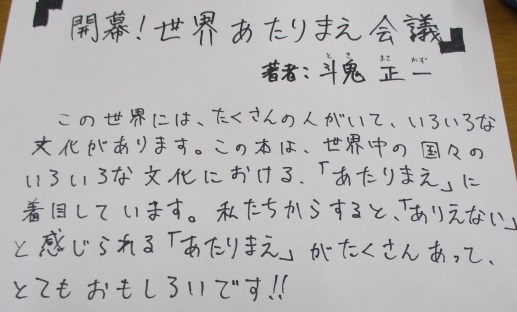 『開幕!世界あたりまえ会議』
著者:斗鬼 正一
とき まさ かず
この世界には、たくさんの人がいて、いろいろな
文化があります。この本は、世界中の国々の
いろいろな文化における、「あたりまえ」に
着目しています。私たちからすると、「ありえない」
と感じられる「あたりまえ」がたくさんあって、
とてもおもしろいです!!